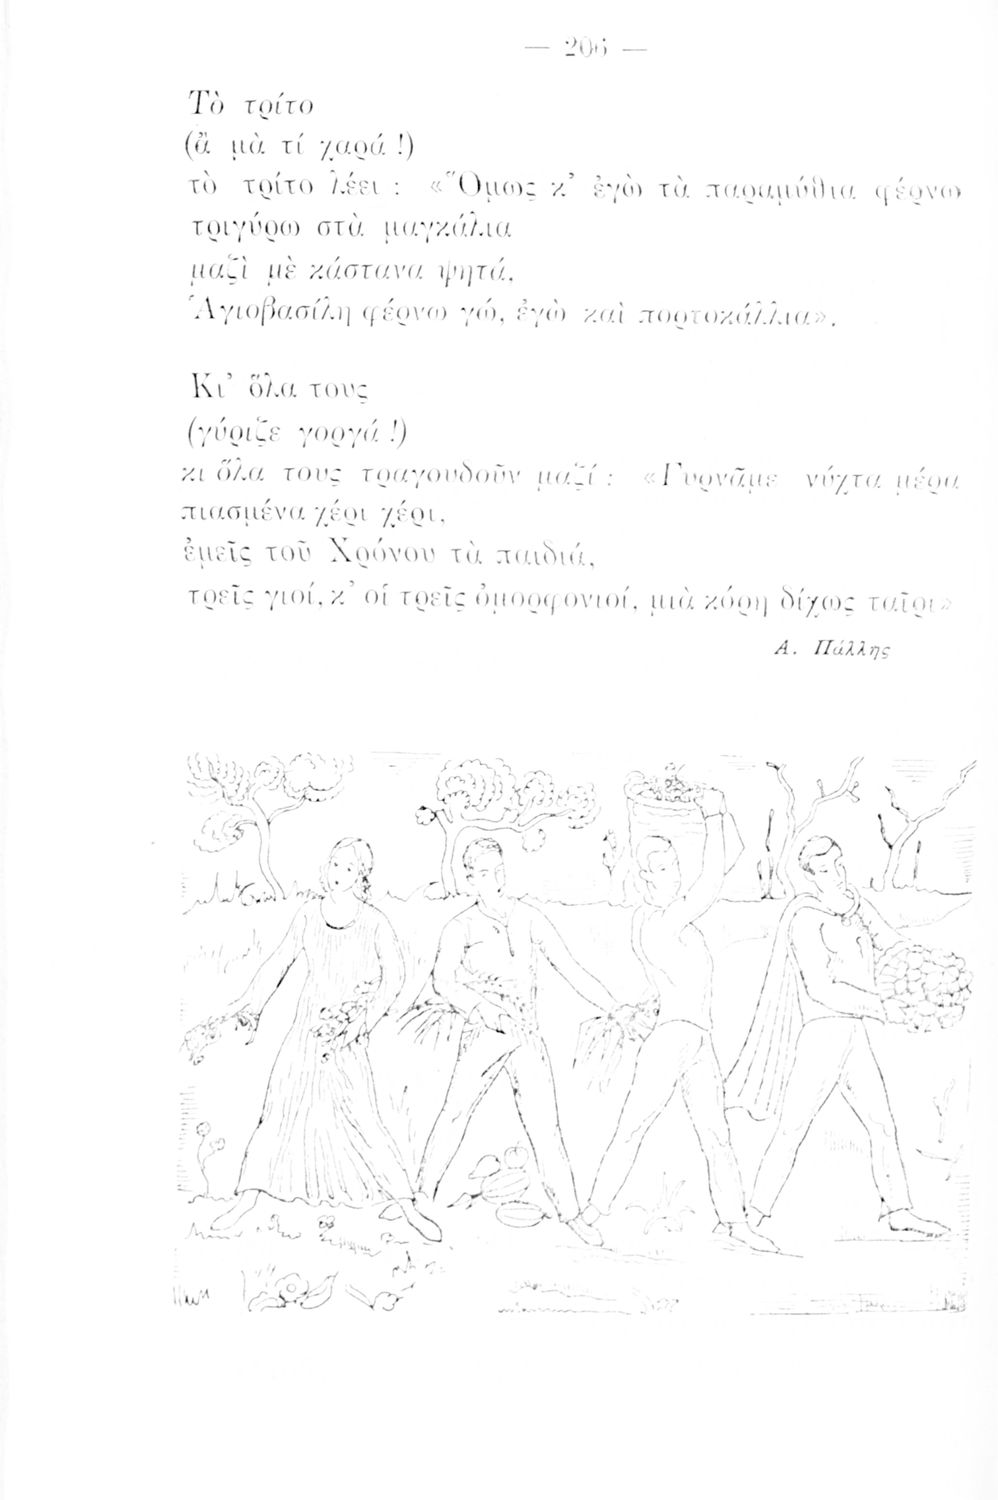 — 206 —
Τὸ τρίτο
(ἂ μὰ τί χαρά !)
τὸ τρίτο λέει : «Ὅμως κ’ ἐγὼ τὰ παραμύθια φέρνω
τριγύρω στὰ μαγκάλια
μαζὶ μὲ κάστανα ψητά,
Ἁγιοβασίλη φέρνω γώ, ἐγὼ καὶ πορτοκάλλια».
Κι’ ὅλα τους
(γύριζε γοργά !)
κι ὅλα τους τραγουδοῦν μαζί : «Γυρνᾶμε νύχτα μέρα
πιασμένα χέρι χέρι,
ἐμεῖς τοῦ Χρόνου τὰ παιδιά,
τρεῖς γιοί, κ’ οἱ τρεῖς ὀμορφονιοί, μιὰ κόρη δίχως ταῖρι»
Α. Πάλλης